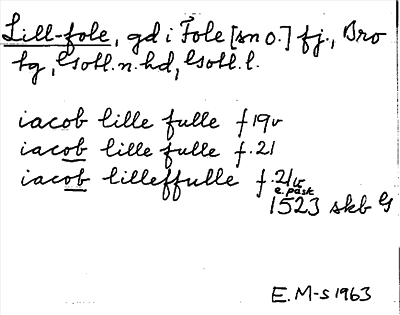 Lill-fole, gd i Fole [sn o.] fj., Bro
tg, Gotl. n. hd, Gotl. l.
iacob lille fulle f 19v
iacob lille fulle f. 21
iacob lilleffulle f. 21v
e. påsk
1523 skb G
E. M-s 1963